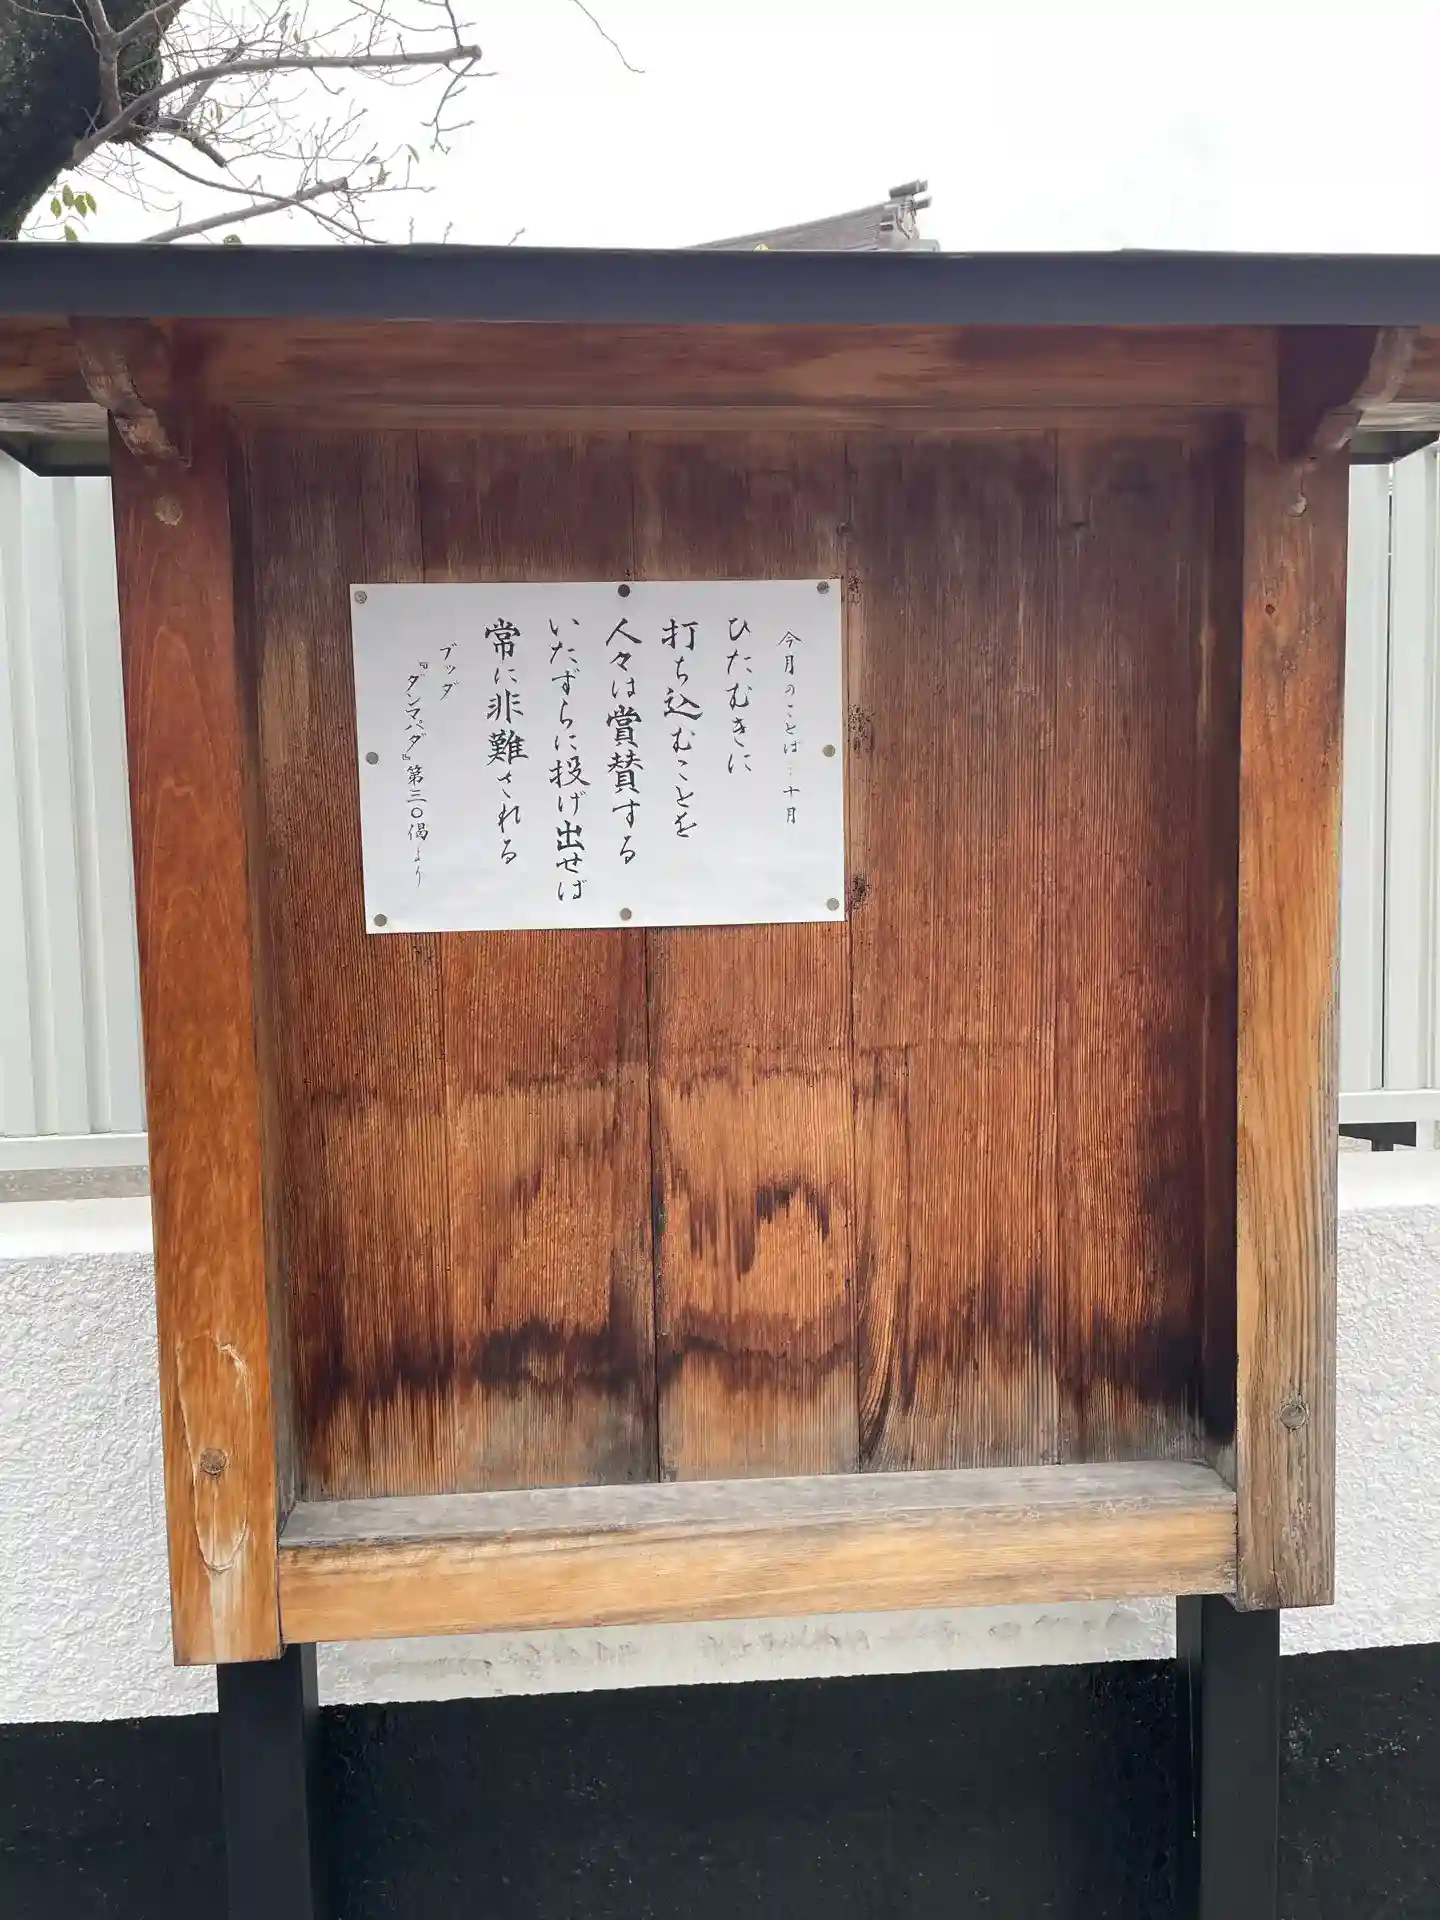 今月のことば…十月
ひたむきに
打ち込むことを
人々は賞賛する
いたずらに投げ出せば
常に非難される
ブッダ
『ダンマパダ』第三〇偈より